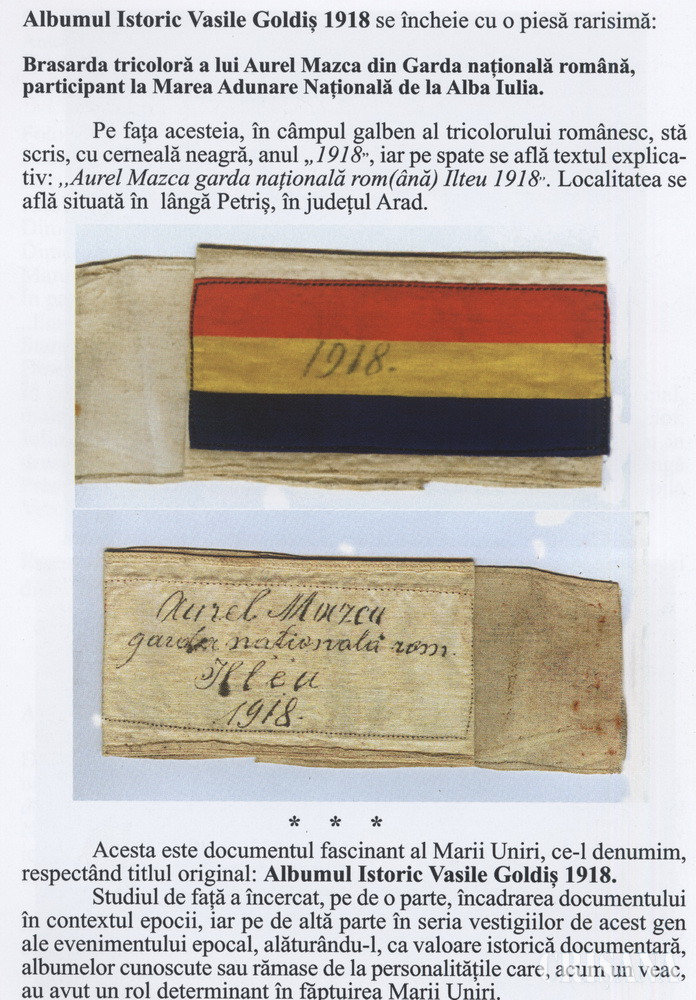 Albumul Istoric Vasile Goldiș 1918 se încheie cu o piesă rarisimă:
Brasarda tricoloră a lui Aurel Mazca din Garda națională română,
participant la Marea Adunare Națională de la Alba Iulia.
Pe fața acesteia, în câmpul galben al tricolorului românesc, stă
scris, cu cerneală neagră, anul „1918”, iar pe spate se află textul explica-
tiv: ,,Aurel Mazca garda națională rom(ână) Ilteu 1918”. Localitatea se
află situată în lângă Petriș, în județul Arad.
1918.
Aurel Mazca
garda natională rom.
Ilteu
1918.
* * *
Acesta este documentul fascinant al Marii Uniri, ce-l denumim,
respectând titlul original: Albumul Istoric Vasile Goldiș 1918.
Studiul de față a încercat, pe de o parte, încadrarea documentului
în contextul epocii, iar pe de altă parte în seria vestigiilor de acest gen
ale evenimentului epocal, alăturându-l, ca valoare istorică documentară,
albumelor cunoscute sau rămase de la personalitățile care, acum un veac,
au avut un rol determinant în făptuirea Marii Uniri.